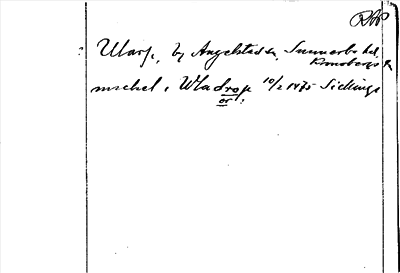 RAP
Ularp, by Angelstads sn, Sunnerbo hd
Kronobergs ln
michel i Wladrop 10/2 1475 Sicklings
or!